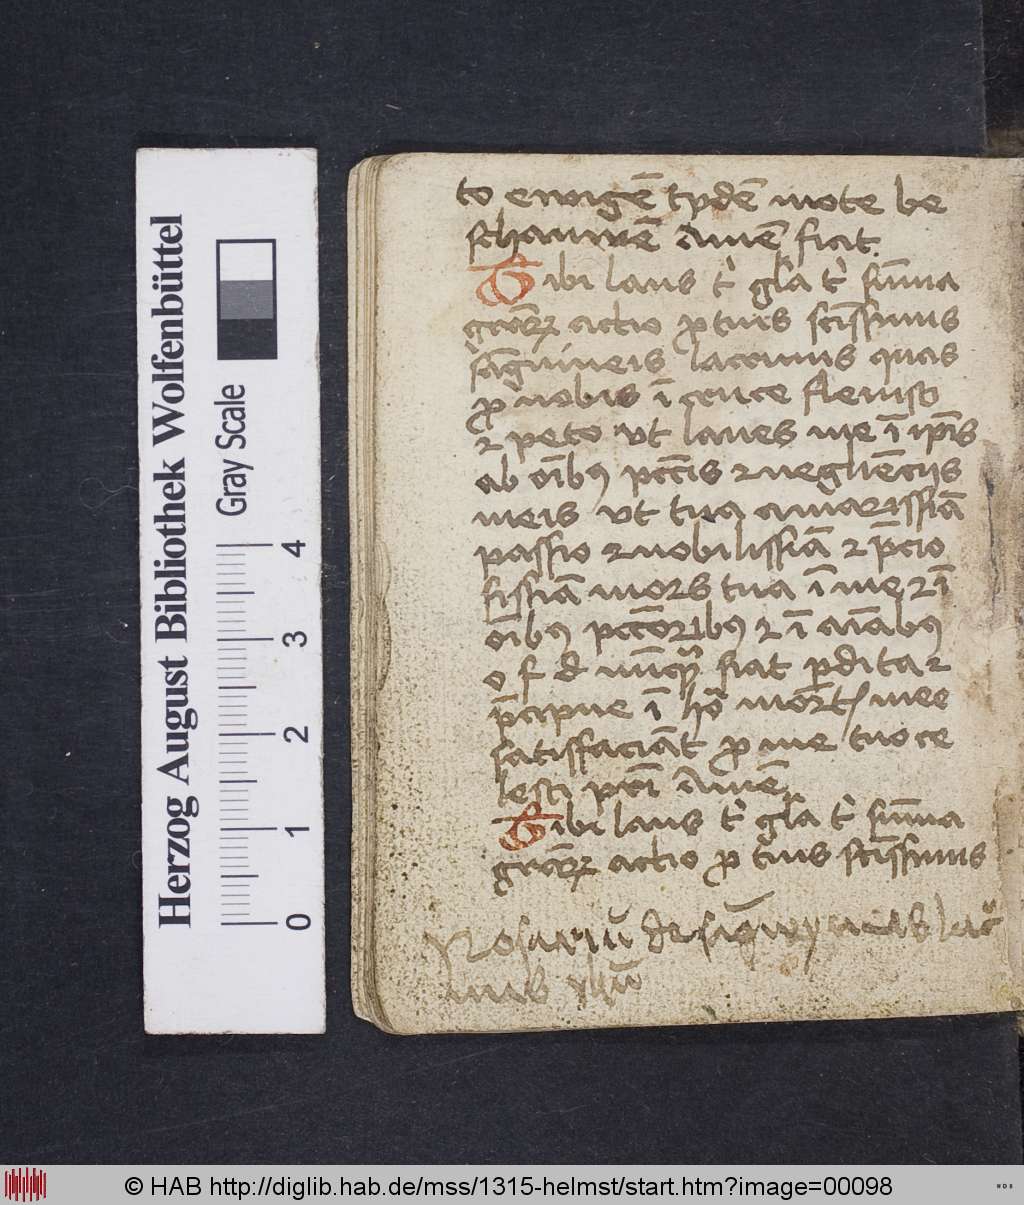 Herzog August Bibliothek Wolfenbüttel
Gray Scale
0 1 2 3 4
to ewigē tydē mote be
schauwē Amē fiat.
Tibi laus t' gl̄a t' sūma
actio ꝑ tuis sctīssimis
sāguineis lacrimis quas
ꝓ nobis ī cruce fleuisti
⁊ peto vt laues me ī ip̄is
ab oībꝰ pctīs ⁊ negliēcijs
meis vt tua amarissīa
passio ⁊ nobilissīa ⁊ p̄cio
sissīa mors tua ī me ⁊ ī
oībꝰ pctōribꝰ ⁊ ī aīabꝰ
o f d nūq̄ fiat ꝑdita ⁊
p̄cipue ī ho᷑ mortꝭ mee
satisfaciāt ꝓ me tuo ce
lesti pr̄i Amē
Tibi laus t' gl̄a t' sūma
actio ꝓ tuis sctīssimis
Rosariū de lac
© HAB http://diglib.hab.de/mss/1315-helmst/start.htm?image=00098